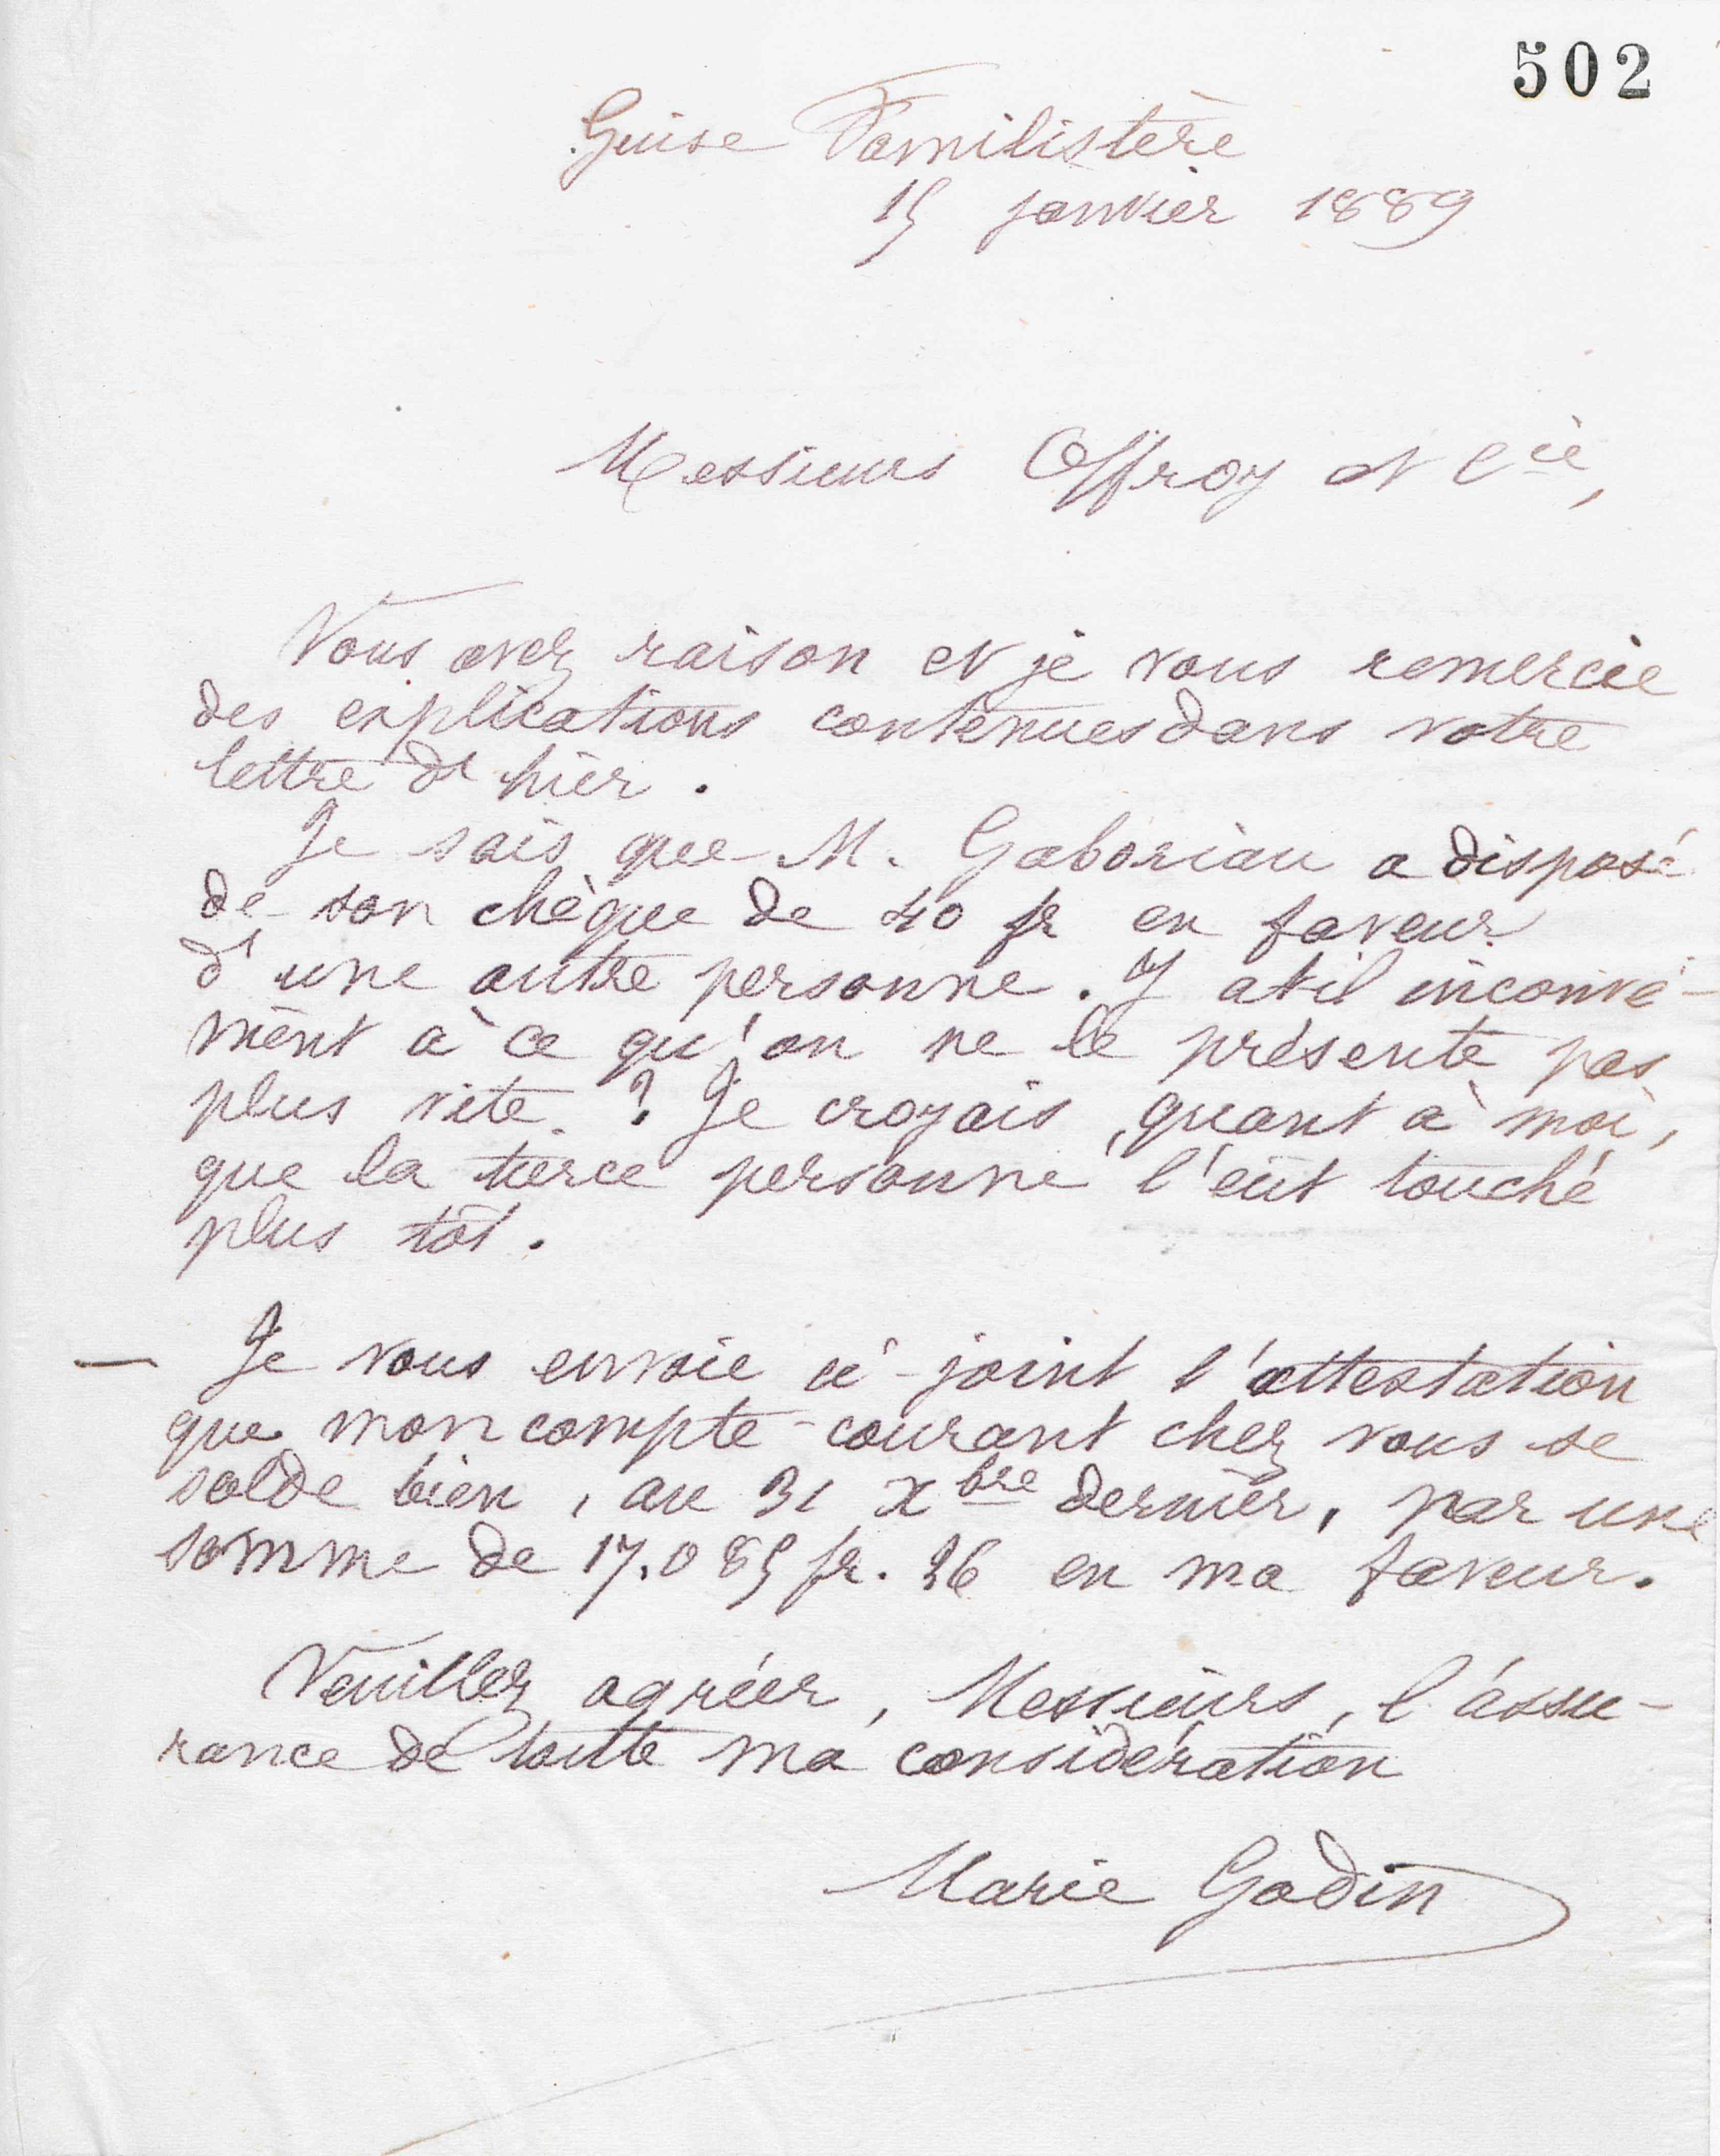 502
Guise Familistère
15 janvier 1889
Messieurs Offroy et Cie,
Vous avez raison et je vous remercie
des explications contenues dans votre
lettre d'hier.
Je sais que M. Gaboriau a disposé
de son chèque de 40 fr en faveur
d'une autre personne. Y a t-il inconvé-
nient à ce qu'on ne le présente pas
plus vite ? Je croyais, quant à moi,
que la tierce personne l'eût touché
plus tôt.
— Je vous envoie ci-joint l'attestation
que mon compte-courant chez vous se
solde bien, au 31 Xbre dernier, par une
somme de 17.085 fr. 26 en ma faveur.
Veuillez agréer, Messieurs, l'assu-
rance de toute ma considération
Marie Godin